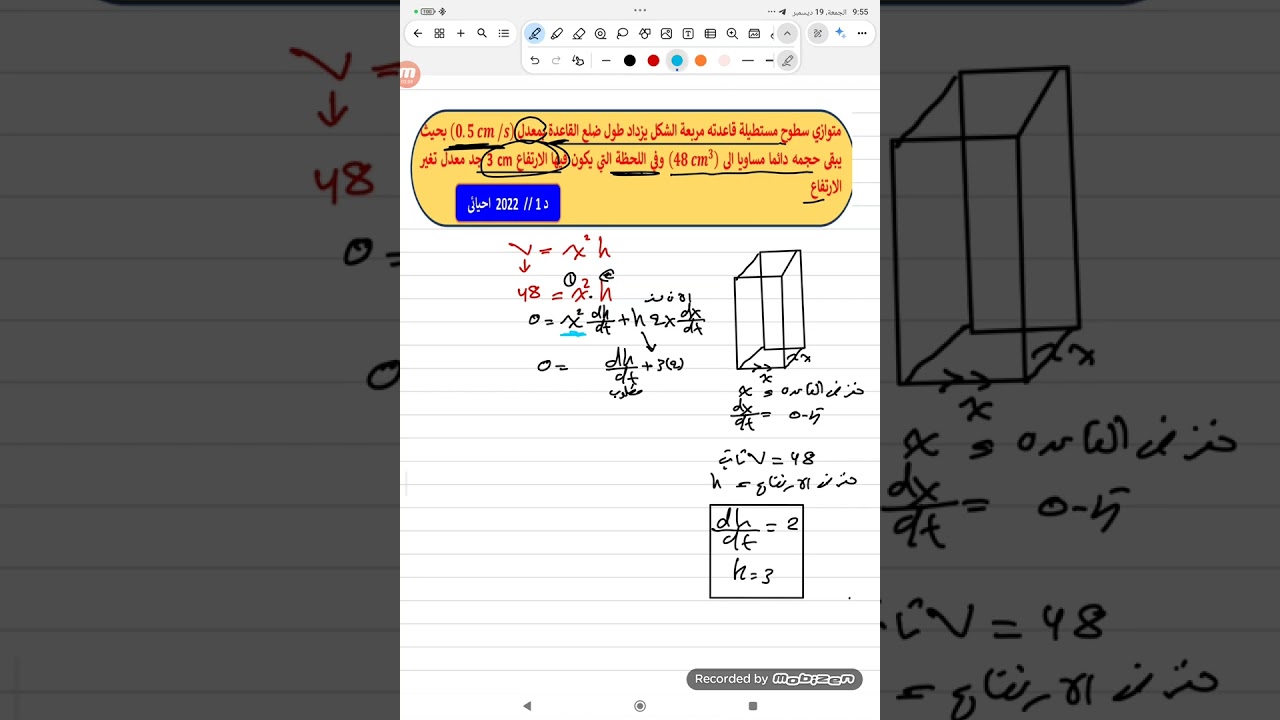 9:55 الجمعة, 19 ديسمبر
100
متوازي سطوح مستطيلة قاعدته مربعة الشكل يزداد طول ضلع القاعدة بمعدل (0.5 cm/s) بحيث
يبقى حجمه دائما مساويا الى (48 cm³) وفي اللحظة التي يكون فيها الارتفاع 3 cm جد معدل تغير
الارتفاع
د 1 // 2022 احيائي
V = x² h
48 = x² · h
① ②
0 = x² dh/dt + h 2x dx/dt
0 = dh/dt + 3(2)
مطلوب
x x
x
x =
dx/dt = 0.5
ثابت V = 48
h = نفرض الارتفاع
dh/dt = ?
h = 3
Recorded by mobizen
V =
48
0
0
x x
x
x =
dx/dt = 0.5
V = 48